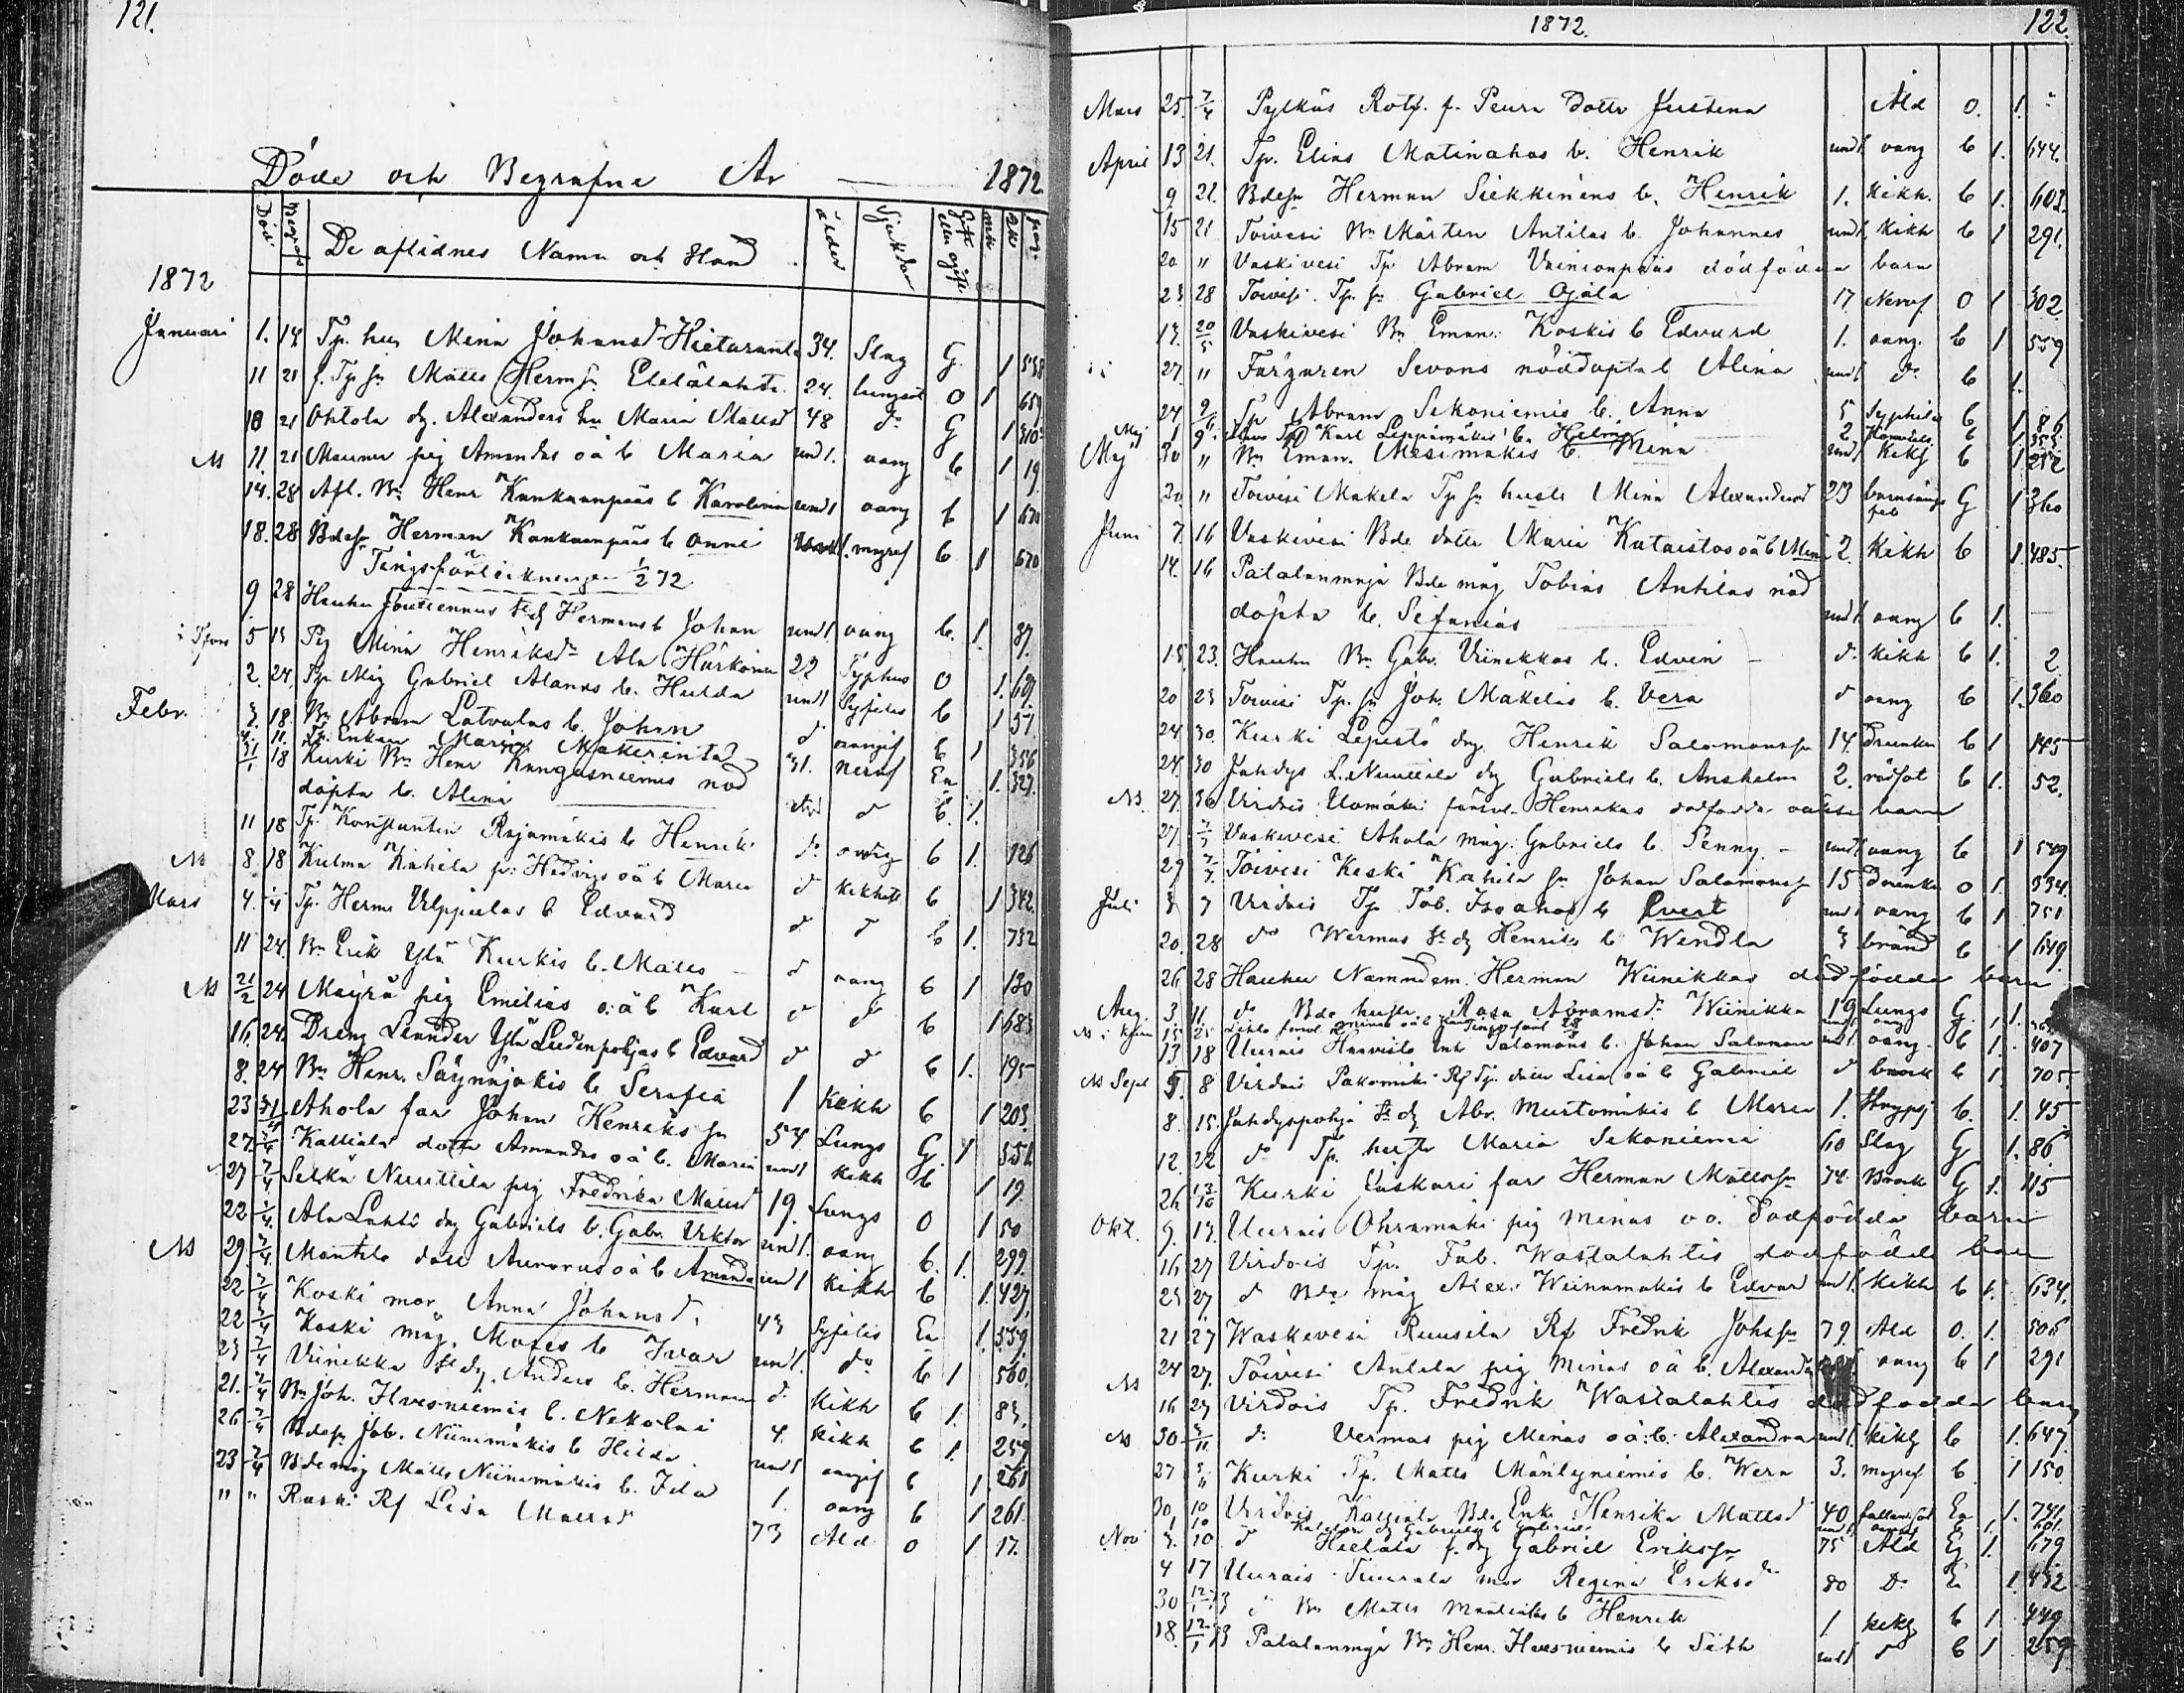 121.
Döde och Begrafne År 1872
Död Begraf. De aflidnes Namn och Stånd ålder Sjukdom Gift eller ogift mk qk pag.
1872
Januari 1. 14 Tp. hu Mina Johansd Hietaranta 34. Slag G. 1 558
11 21 f. Tp sn Matts Herm sn Elelälahti 24. lungsot O 1 659
18 21 Ohtola dg. Alexanders hu Maria Mattsd 48 do G 1 310
M 11. 21 Maunu pig Amandas oä b Maria und 1. oang b 1 19.
14. 28 Afl. Bn Henr Kankaanpääs b Karolina und 1 oang b 1 670
18. 28 Bdesn Herman Kankaanpääs b Anni und 1. magref b 1 670
Tingsförteckningen 1/2 72
9 28 Hauhu Jousiennus st dg Hermans b Johan und 1. oang b. 1. 87.
i Tfors 5 14 Pig Mina Henriksdr Ala Härkönen 22 Typhus O 1. 689.
2. 24. Tp. Måg Gabriel Alanens b. Hulda und 1 Syfilis b 1 57
Febr. 3. 18. Bn Abram Latvalas b. Johan d oangif b 1 356
4. 11. Tp. Enkan Maria Mäkerinta 51. Nervf En 1. 327.
31/1 18 Kurki Bn Henr Kangasniemis nöd
döpta b. Alina d b. 1.
11 18 Tp. Konstantin Rajamäkis b Henrik d. oang b 1. 126
M 8. 18 Kulma Kahila pi: Hedvigs oä b Maria d kikhosta b 1 342.
Mars 4. Tp. Herm Ulppulas b Edvard d d b 1. 732
11 24. Bn Erik Ylä Kurkis b. Matts d oang b 1 130
M 21/2 24 Mäyrä pig Emilias oä b Karl d d b 1 683
16. 24. Dreng Leander Ylä Liedenpohjas b Edvard d d b 1. 195
8. 24 Bn Henr. Säynäjäkis b Serafia 1 Kikh b 1 203.
23 31 Ahola far Johan Henriks sn 54 Lungs G. 1 551
27. 7/4 Kallialа dottr Amandas oä b. Maria und 1 kikh b 1 19.
27 7/4 Silkä Nuuttila pig Fredrika Mattsd 19. Lungs O 1 50
22 7/4. Ala Lahti dg Gabriels b. Gabr. Viktor und 1. oang b. 1. 299.
M 29. 7/4. Mantila dottr Auroras oä b Amanda und 1 kikh b 1. 427.
22 7/4 Koski mor Anna Johansd. 43 Syfilis En 1. 559.
22 7/4 Koski måg. Moses b Ivar und 1. do b 1 560,
23 7/4 Viinikka st dg. Anders b. Herman d. Kikh b 1. 83.
21. 7/4 Bn Joh. Hvesniemis b. Nikolai 4. kikh b 1. 259
26 7/4 Bdesn Job. Niinimäkis b Hilda und 1 oangif b 1 261
23 7/4 Bde måg Matts Niinimäkis b. Ida 1. oang b 1 261
" " Raski Rf Lisa Mattsd 73 Ald o 1 17.
1872. 122.
Mars 25. 7/4 Pylkäs Rotf. f. Peura dottr Justina Ald O. 1. -
April 13 21. Tp. Elias Matinahos b. Henrik und 1 oang b 1. 644.
9. 21. Bdesn Herman Siekkinens b. Henrik 1. kikh. b 1. 602.
15 21 Toivesi Bn Mårten Antilas b. Johannes und 1. kikh b 1 291.
20 " Vaskivesi Tp Abram Väinionpääs dödfödda barn
23 28 Toivesi. Tp. sn Gabriel Ojala 17 Nervf O 1 302
17. 20/5 Vaskivesi Bn Eman: Koskis b Edvard 1. oang. b 1 559
27. " Färgaren Sevons nöddöpta b Alina und 1 do b 1.
24 9/ Tp Abram Sekoniemis b. Anna 5 Syphilis b 1. 86
Maj 1 9 Tp Karl Leppämäkis b. Helmi 2. b 1. 353
Maj 20 " Bn Eman. Mesimäkis b. Mina und 1 kikh b 1 252
20. " Toivesi Mäkelä Tp sn hustr Mina Alexandersd 23 barnsängs feb G 1 360
Juni 7. 16 Vaskivesi Bde dottr Maria Kataistos oä b Mina 2. Kikh b 1. 485.
14. 16 Patalanmaja Bde måg Tobias Antilas nöd
döpta b. Sefanias und 1 oang b 1.
15. 23. Hauhu Bn Gabr. Viinikkas b. Edvin d. kikh b 1. 2
20 23 Toivesi Tp. sn Joh. Mäkeläs b. Vera d oang b 1. 360
24 30. Kurki Lepistö dg. Henrik Salomonssn 14. Drunkn b 1 145
24. 30 Jähdys L. Nuuttila dg Gabriels b. Anshelm 2. rödsot b 1. 52.
M. 27. 30 Virdois Uomäki Henrikas dödfödda oäkta barn
27. 7/7 Vaskivesi Ahola måg. Gabriels b. Fenny und 1 oang b 1 549
29 7/7. Toivesi Keski Kahila sn Johan Salomonssn 15 Drunkn O 1. 334.
Juli 3 7 Virdois Tp Tob. Isoahos b Evert und 1 oang b 1 751
20. 28 do Wermas st dg Henriks b Wendla 3 bränd b 1 649.
26 28 Hauhu Nämndem. Herman Wiinikkas dödfödda barn
Aug. 3. 11 do Bde hustr. Rosa Abramsd. Wiinikka 19 Lungs G. 1.
M i 15 25 Minas oä b
13 18 Uurais Haavisto Inh Salomons b. Johan Salomon und 1. oang. b 1. 407
M Sept 5. 8 Virdois Pakomäki Rf Tp. dottr Lisas oä b Gabriel d brosk b 1. 705.
8. 15. Jähdyspohja st dg Abr. Murtomäkis b Maria 1. b. 1. 45
12. 22 do Tp. hustr Maria Sekoniemi 60 Slag G 1. 86
26 13/10 Kurki Laskari far Herman Mattssn 74. Brosk G 1. 115
Okt. 9. 13. Uurais Ohramäki pig Minas o ä. dödfödda barn
16 27 Virdois Tp. Fab. Wastalahtis dödfödda barn
23 27. d Bde måg Alex. Weinämäkis b Edvard und 1. kikh b 1. 634.
21 27 Waskivesi Ruusila Rf Fredrik Johssn 79. Ald O. 1. 506
M 24 27. Toivesi Antila pig Minas oä b. Alexandra oang b 1 291
16 27 Virdois Tp. Fredrik Wastalahtis dödfödda barn
M 30 3/11 d: Vermas pig Minas oä: b: Alexandra und 1. kikh b 1. 647.
27 3/11 Kurki Tp. Matts Mäntyniemis b. Wera 3. magref b 1 150.
30. 10 Virdois Kallialа Bde Enk. Henrika Mattsd 40 fallandsot En 1. 741.
1 10 dg Gabriels b Gabriel und 1. oang b 1. 601.
Nov 3. 10 d Hielala f. dg Gabriel Eriksson 75 Ald Eg 1. 679
4 17 Uurais Tuurala mor Regina Eriksdr 80 Do En 1. 432
30 12/1 73 d Bn Matts Mantilas b Henrik 1. kikh b 1 449
18. 12/1 73 Patalanmaja Bn Henr. Hvesniemis b Seth und 1 d b 1 259